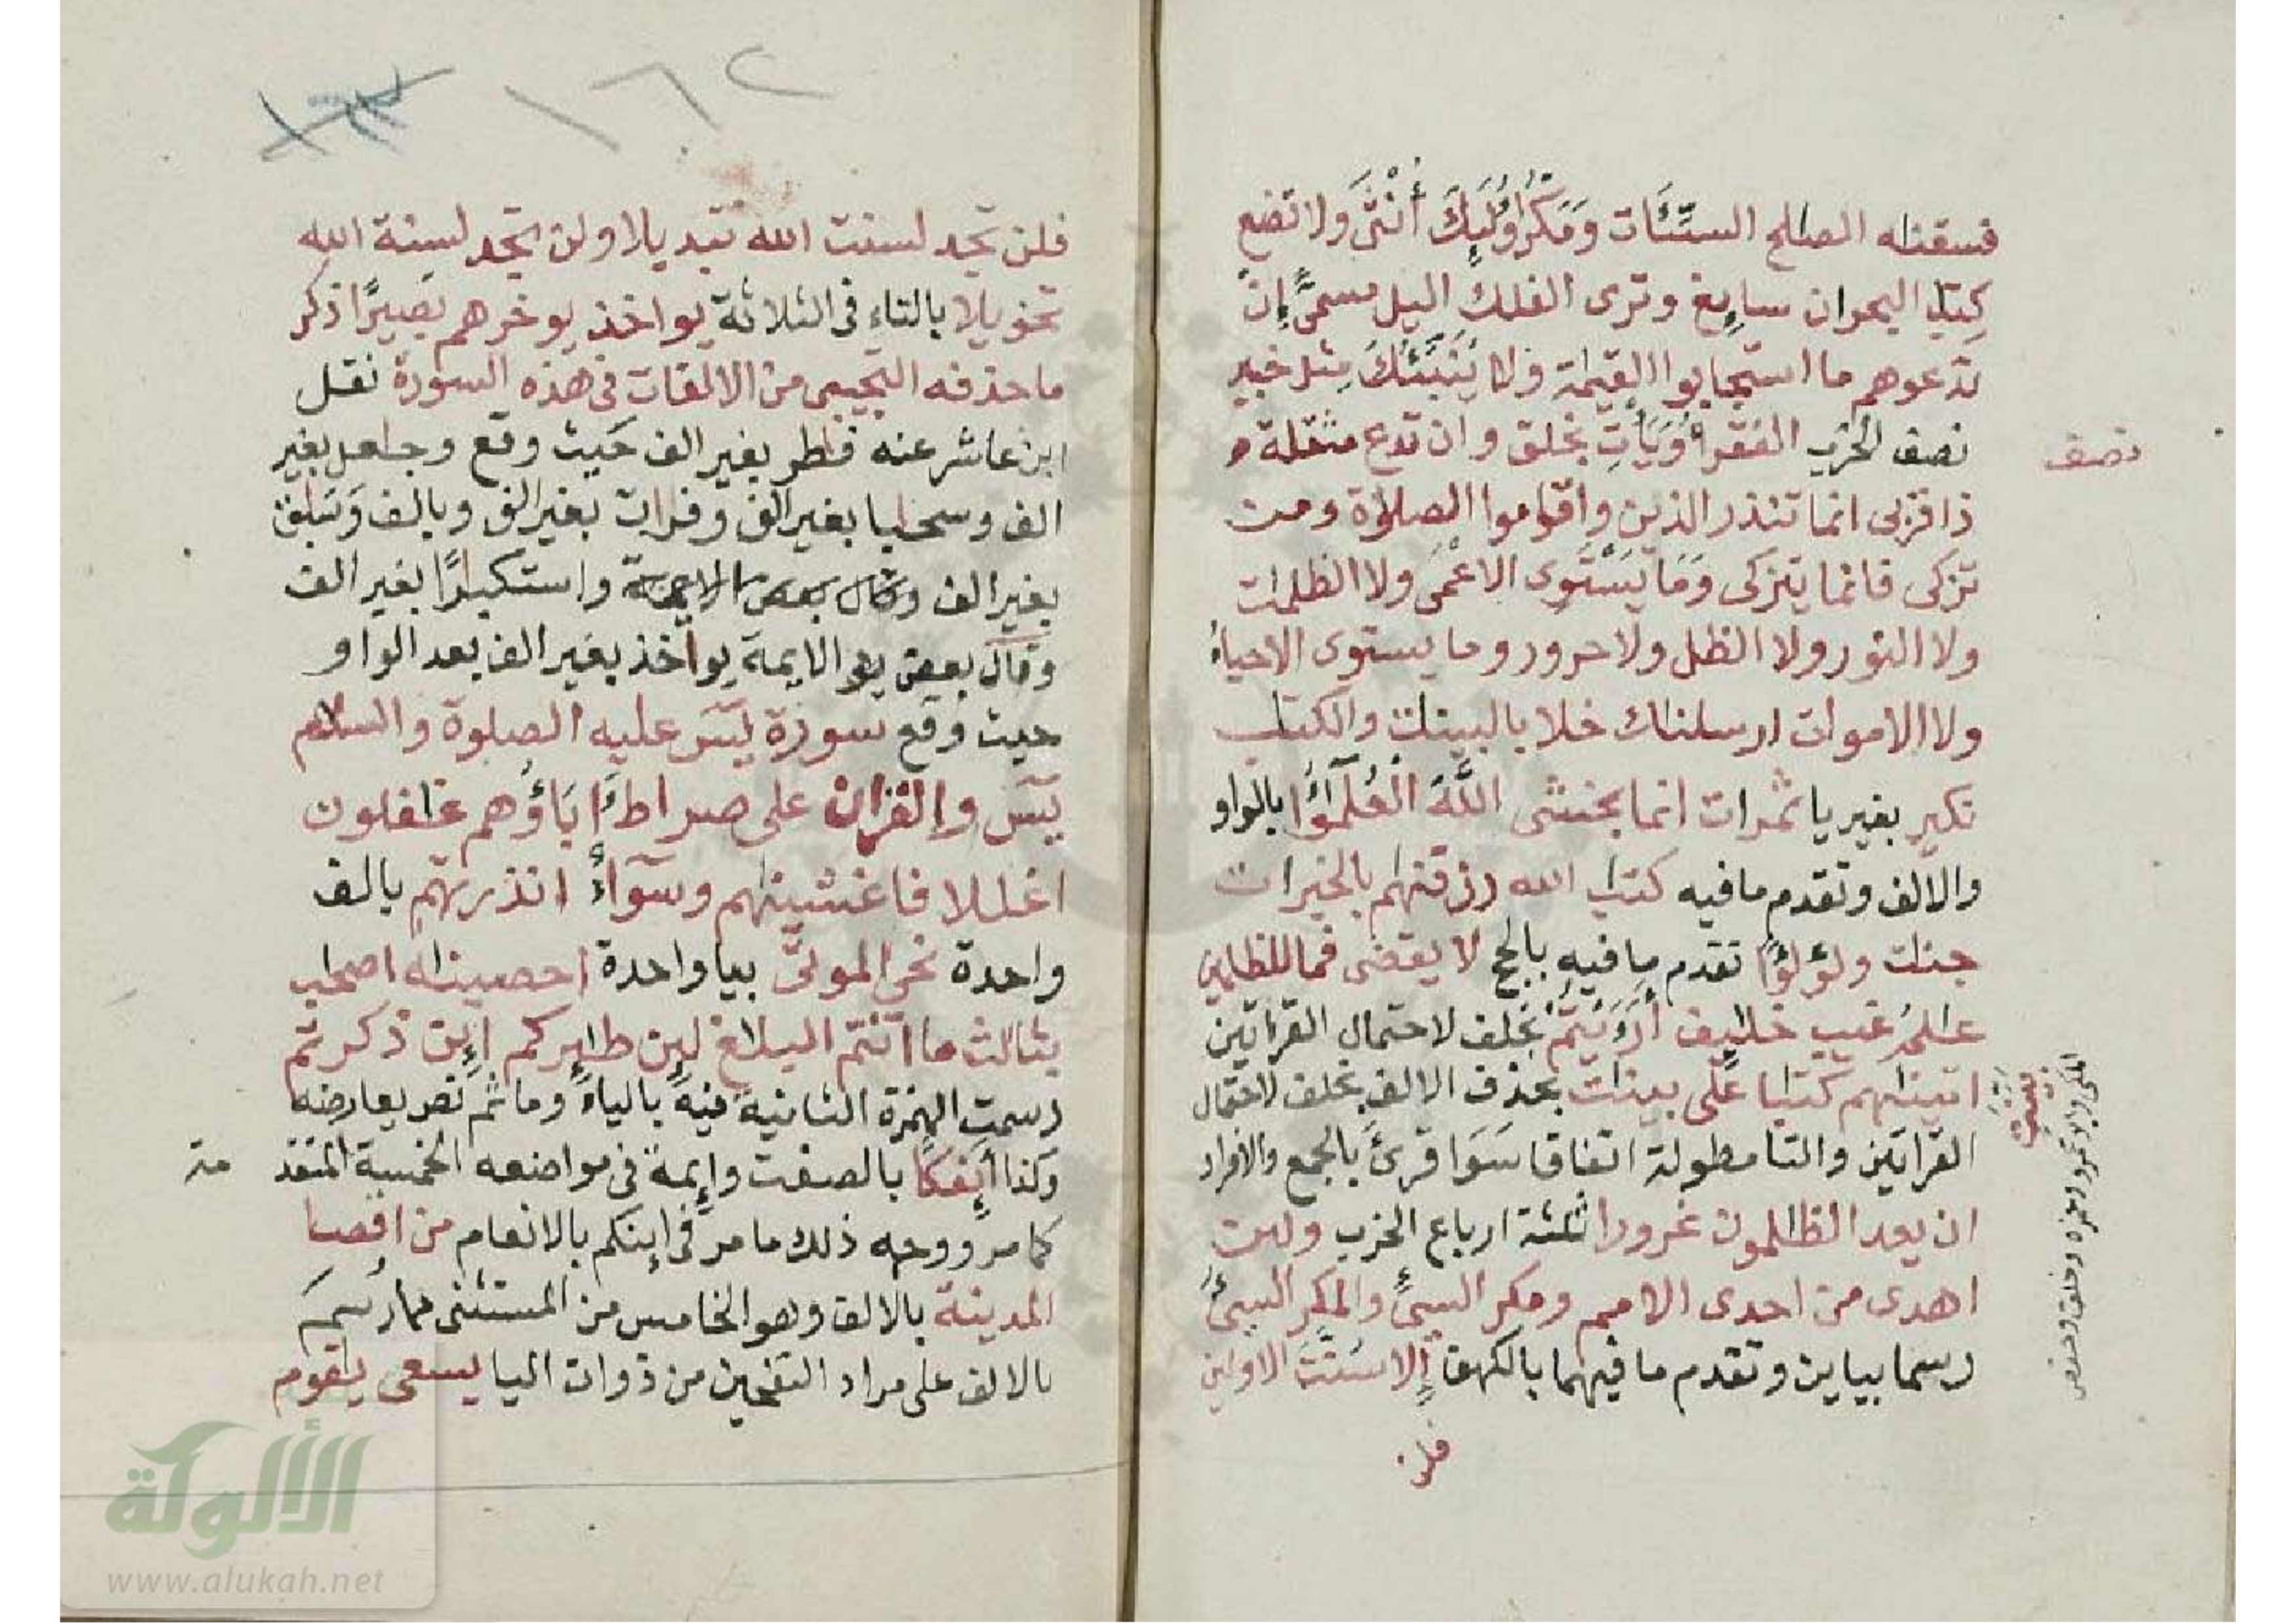 فسقنله الصلح السيئات ومكر اولئك أنثى ولا تضع
كتب البحران سايغ وترى الفلك اليل مسمى إن
تدعوهم ما استجابوا القيمة ولا ينبئك مثل خبير
نصف الحزب الفقرا ويأت بخلق وان تدع مثقلة
نصف
ذا قربى انما تنذر الذين واقاموا الصلوة ومن
تزكى فانما يتزكى وما يستوى الاعمى ولا الظلمات
ولا النور ولا الظل ولا حرور وما يستوى الاحياء
ولا الاموات ارسلناك خلا بالبينات والكتب
نكير بغير يا ثمرات انما يخشى الله العلمؤا بالواو
والالف وتقدم ما فيه كتب الله رزقنهم بالخيرات
جنات ولؤلؤا تقدم ما فيه بالحج لا يقضى فما للظلمين
علم غيب خليف أرءيتم بخلف لاحتمال القراتين
اتينهم كتبا على بينات بحذف الالف بخلف لاحتمال
القراتين والتا مطولة اتفاقا سوا قرئ بالجمع والافراد
ان يعد الظلمون غرورا ثلثة ارباع الحزب ولين
اهدى من احدى الامم ومكر السيئ والمكر السيئ
رسما بياين وتقدم ما فيهما بالكهف إلا سنت الاولين
فلن
١٦٢
فلن تجد لسنت الله تبديلا ولن تجد لسنة الله
تحويلا بالتاء فى الثلاثة يواخذ يوخرهم بصيرا ذكر
ما حذفه التجيبى من الالفات فى هذه السورة نقل
ابن عاشر عنه فطر بغير الف حيث وقع وجعل بغير
الف وسحبا بغير الف وفرات بغير الف وبالف
بغير الف واستكبرا بغير الف
وقال بعض الايمة يواخذ بغير الف بعد الواو
حيث وقع سورة يس عليه الصلوة والسلام
يس والقران على صراط ءاباؤهم غفلون
اغللا فاغشينهم وسوآء انذرتهم بالف
واحدة نحى الموتى بيا واحدة احصينه اصحب
بثالث ما انتم البلغ لين طيركم اين ذكرتم
رسمت الهمزة الثانية فيه بالياء وما ثم نص يعارضه
وكذا أيفكا بالصفت وايمة فى مواضعه الخمسة المتقد
مة
كما مر ووجه ذلك ما مر فى اينكم بالانعام من اقصا
المدينة بالالف وهو الخامس من المستثنى مما رسم
بالالف على مراد التفخيم من ذوات اليا يسعى يقوم
الألوكة
www.alukah.net